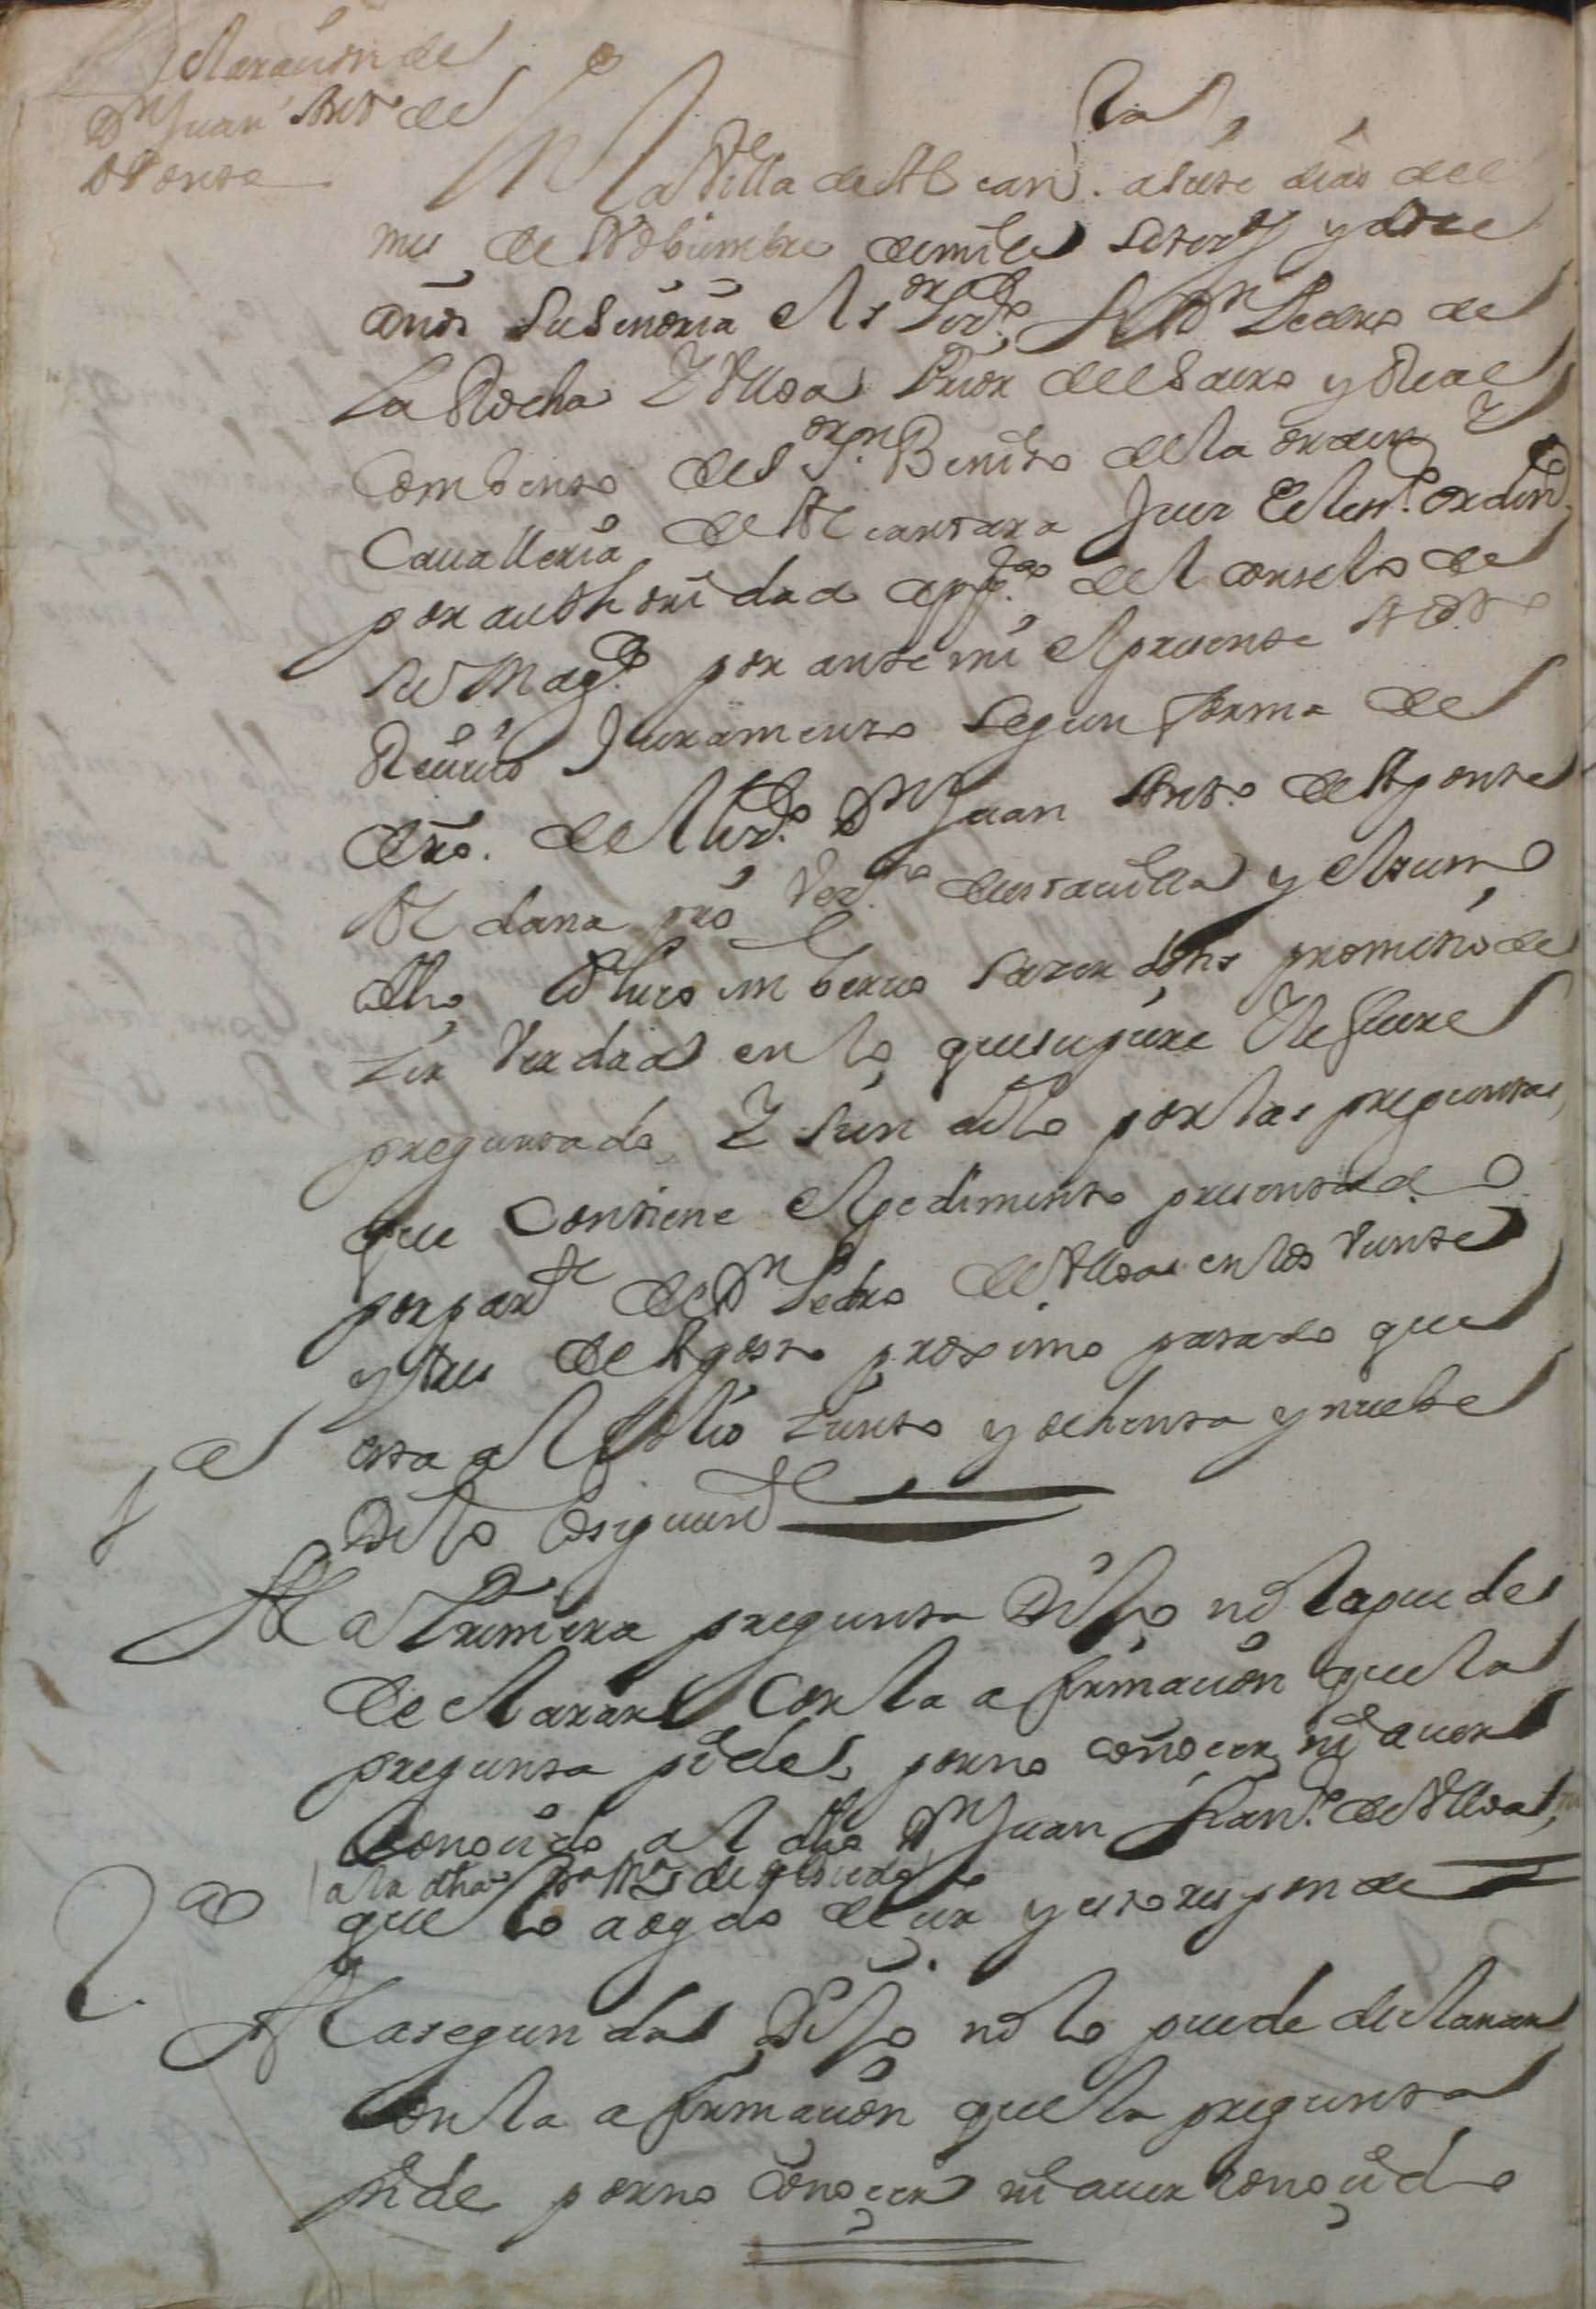 Declaraçion de
Dn Juan Antto de
Aponte
En la Villa de Alcanra a siete dias del
mes de Nobiembre de mil setezs y doze
años Su Señoria el Sor Lizdo Fr Dn Pedro de
la Rocha Y Ulloa Prior del Sacro y Real
Combento del Sor Sn Benito de la orden y
Caualleria de Alcantara Juez Ecleso ordino
por authoridad appca del consejo de
su Magd por ante mi el presente Notto
Reçiuio Juramento segun forma de
dro. del Lizdo Dn Juan Antto de Aponte
Aldana pro vezno desta uilla y el suso
dho lo hizo in berbo sazerdotis prometio de
zir verdad en lo que supiere y le fuere
preguntado, Y siendolo por las preguntas
que Contiene el pedimento presentado
por parte de Dn Pedro de Ulloa en los veinte
y tres de Agosto proximo pasado que
esta al folio ziento y ochenta y nuebe
Dijo lo siguiente
1a
A la Primera pregunta Dijo no la puede
declarar Con la afirmaçion que la
pregunta pide, por no conoçer ni auer
Conoçido al dho Dn Juan Franco de Ulloa,
a la dha Da Ma de
que lo a oydo deçir y esto responde
2a
A la segunda Dijo no lo puede declarar
Con la afirmaçion que la pregunta
pide por no Conoçer ni auer conoçido